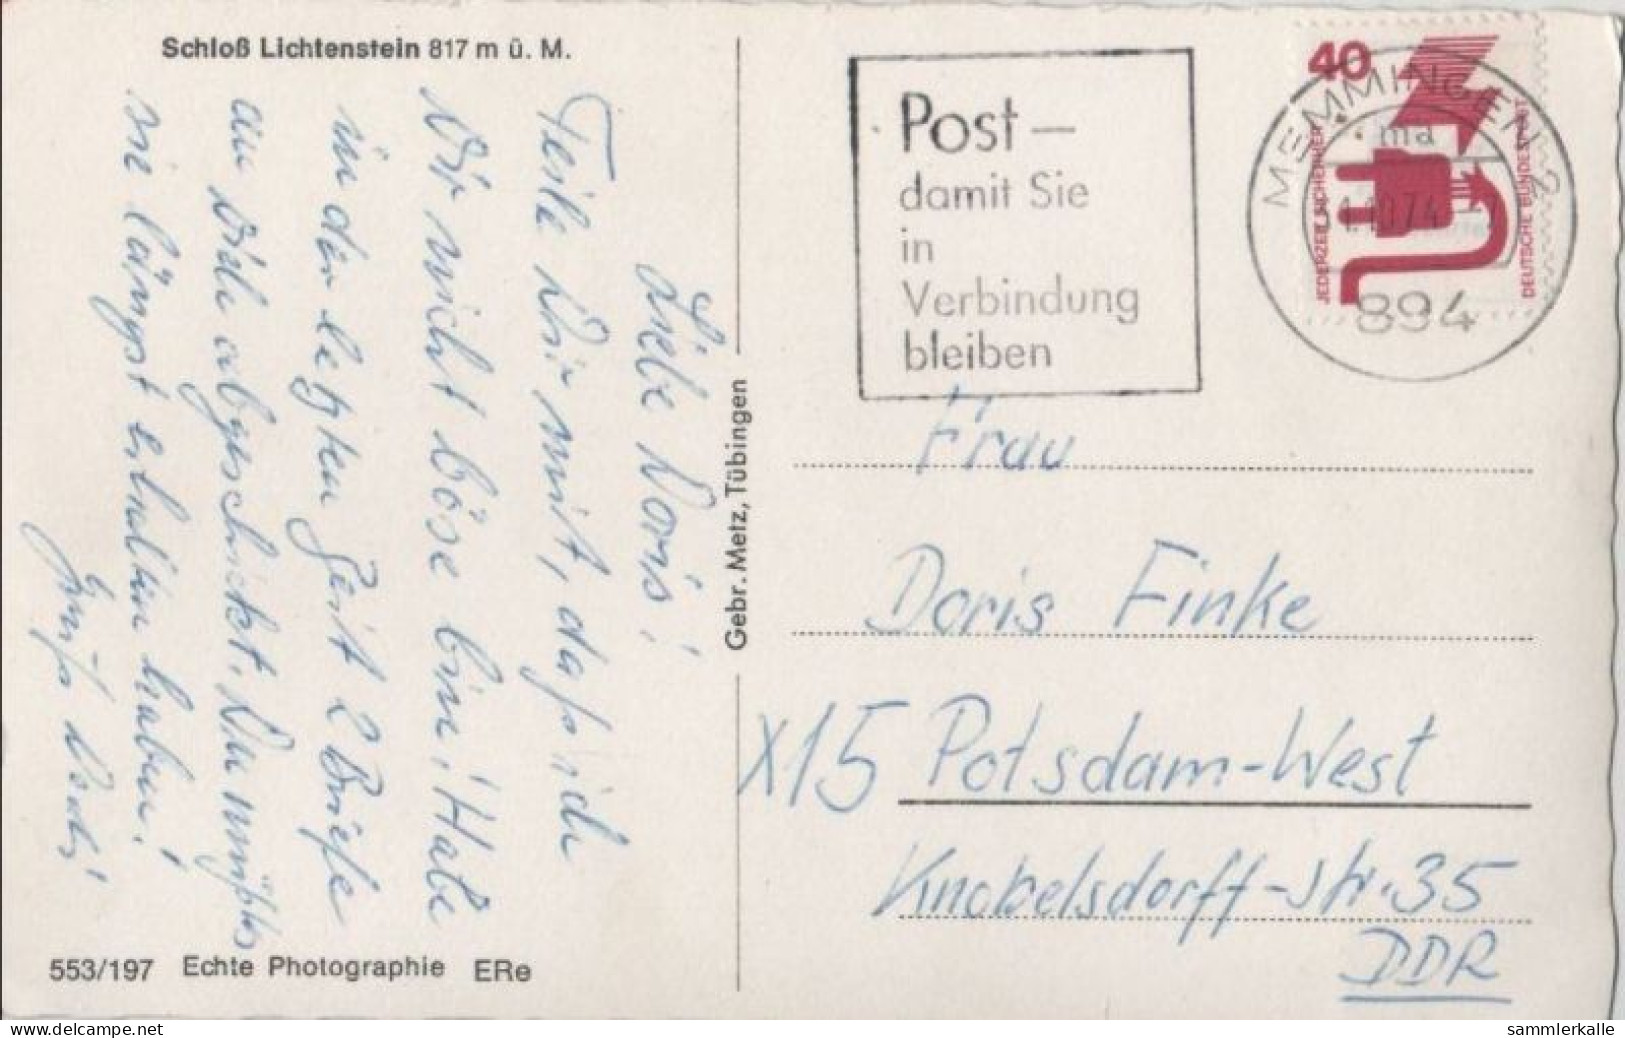 Schloß Lichtenstein 817 m ü. M.
Liebe Doris!
Teile Dir mit, daß ich
Dir nicht böse bin! Habe
in der letzten Zeit 2 Briefe
an Dich abgeschickt. Du müßtest
sie längst erhalten haben!
553/197 Echte Photographie ERe
Gebr. Metz, Tübingen
Post –
damit Sie
in
Verbindung
bleiben
40
JEDERZEIT SICHERHEIT
DEUTSCHE BUNDESPOST
MEMMINGEN 2
ma
1.10.74
894
Frau
Doris Finke
X15 Potsdam-West
Knobelsdorff-Str. 35
DDR
www.delcampe.net
sammlerkalle